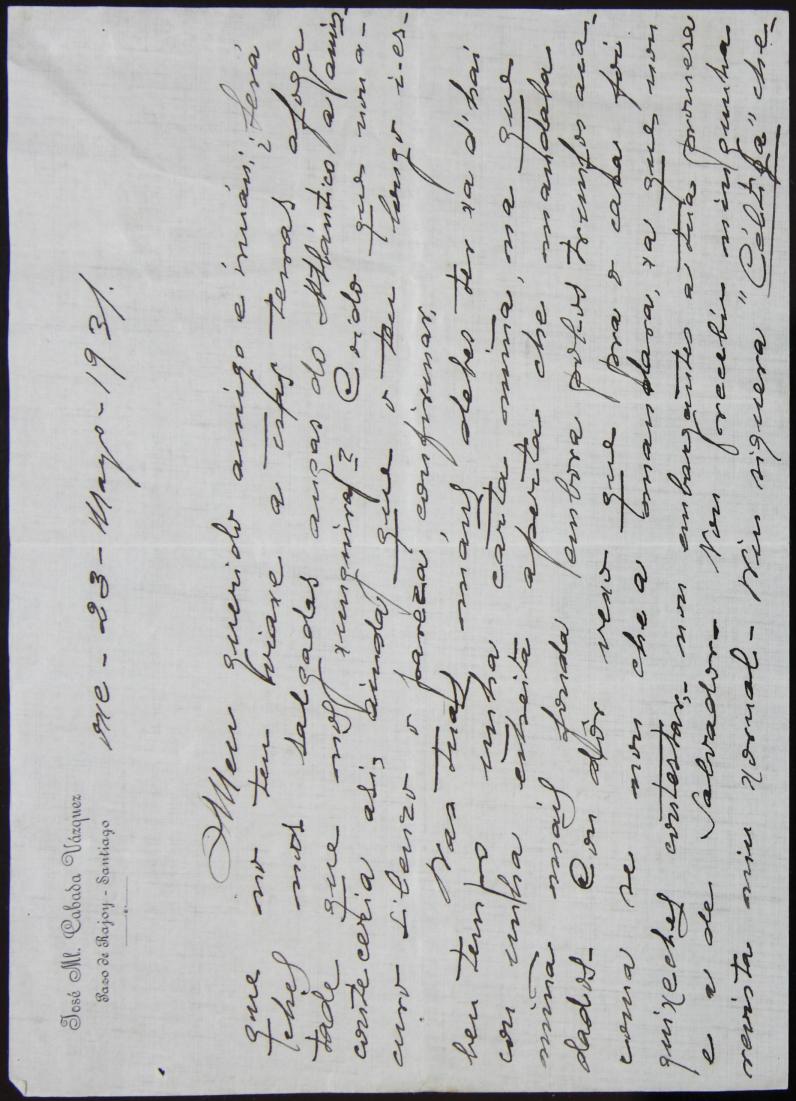 José Ml. Cabada Vázquez
Pazo de Rajoy - Santiago
23 - Mayo - 1931.
Meu querido amigo e irmán: ¿Será
que no teu viaxe a istas terras afoga
ches nos salgadas augas do Atlántico a amis-
tade que nos xunguira? Coido que non a-
contecería asís ainda que o teu longo i es-
curo silenzo o pareza confirmar.
Nas tuas máns debes ter xa d'hai
ben tempo unha carta miña, na que
con unha estreita aperta che mandaba
miña máis fonda embora polos trunfos aca-
dados - Con dôr vexo que pra o caso foi
coma se non cha mandara, xa que non
quixeches contestar; - non embargantes a tua promesa
e a de Salvador - Non recebin ningunha
revista nin xornal - Nin siquera "Céltiga" che-